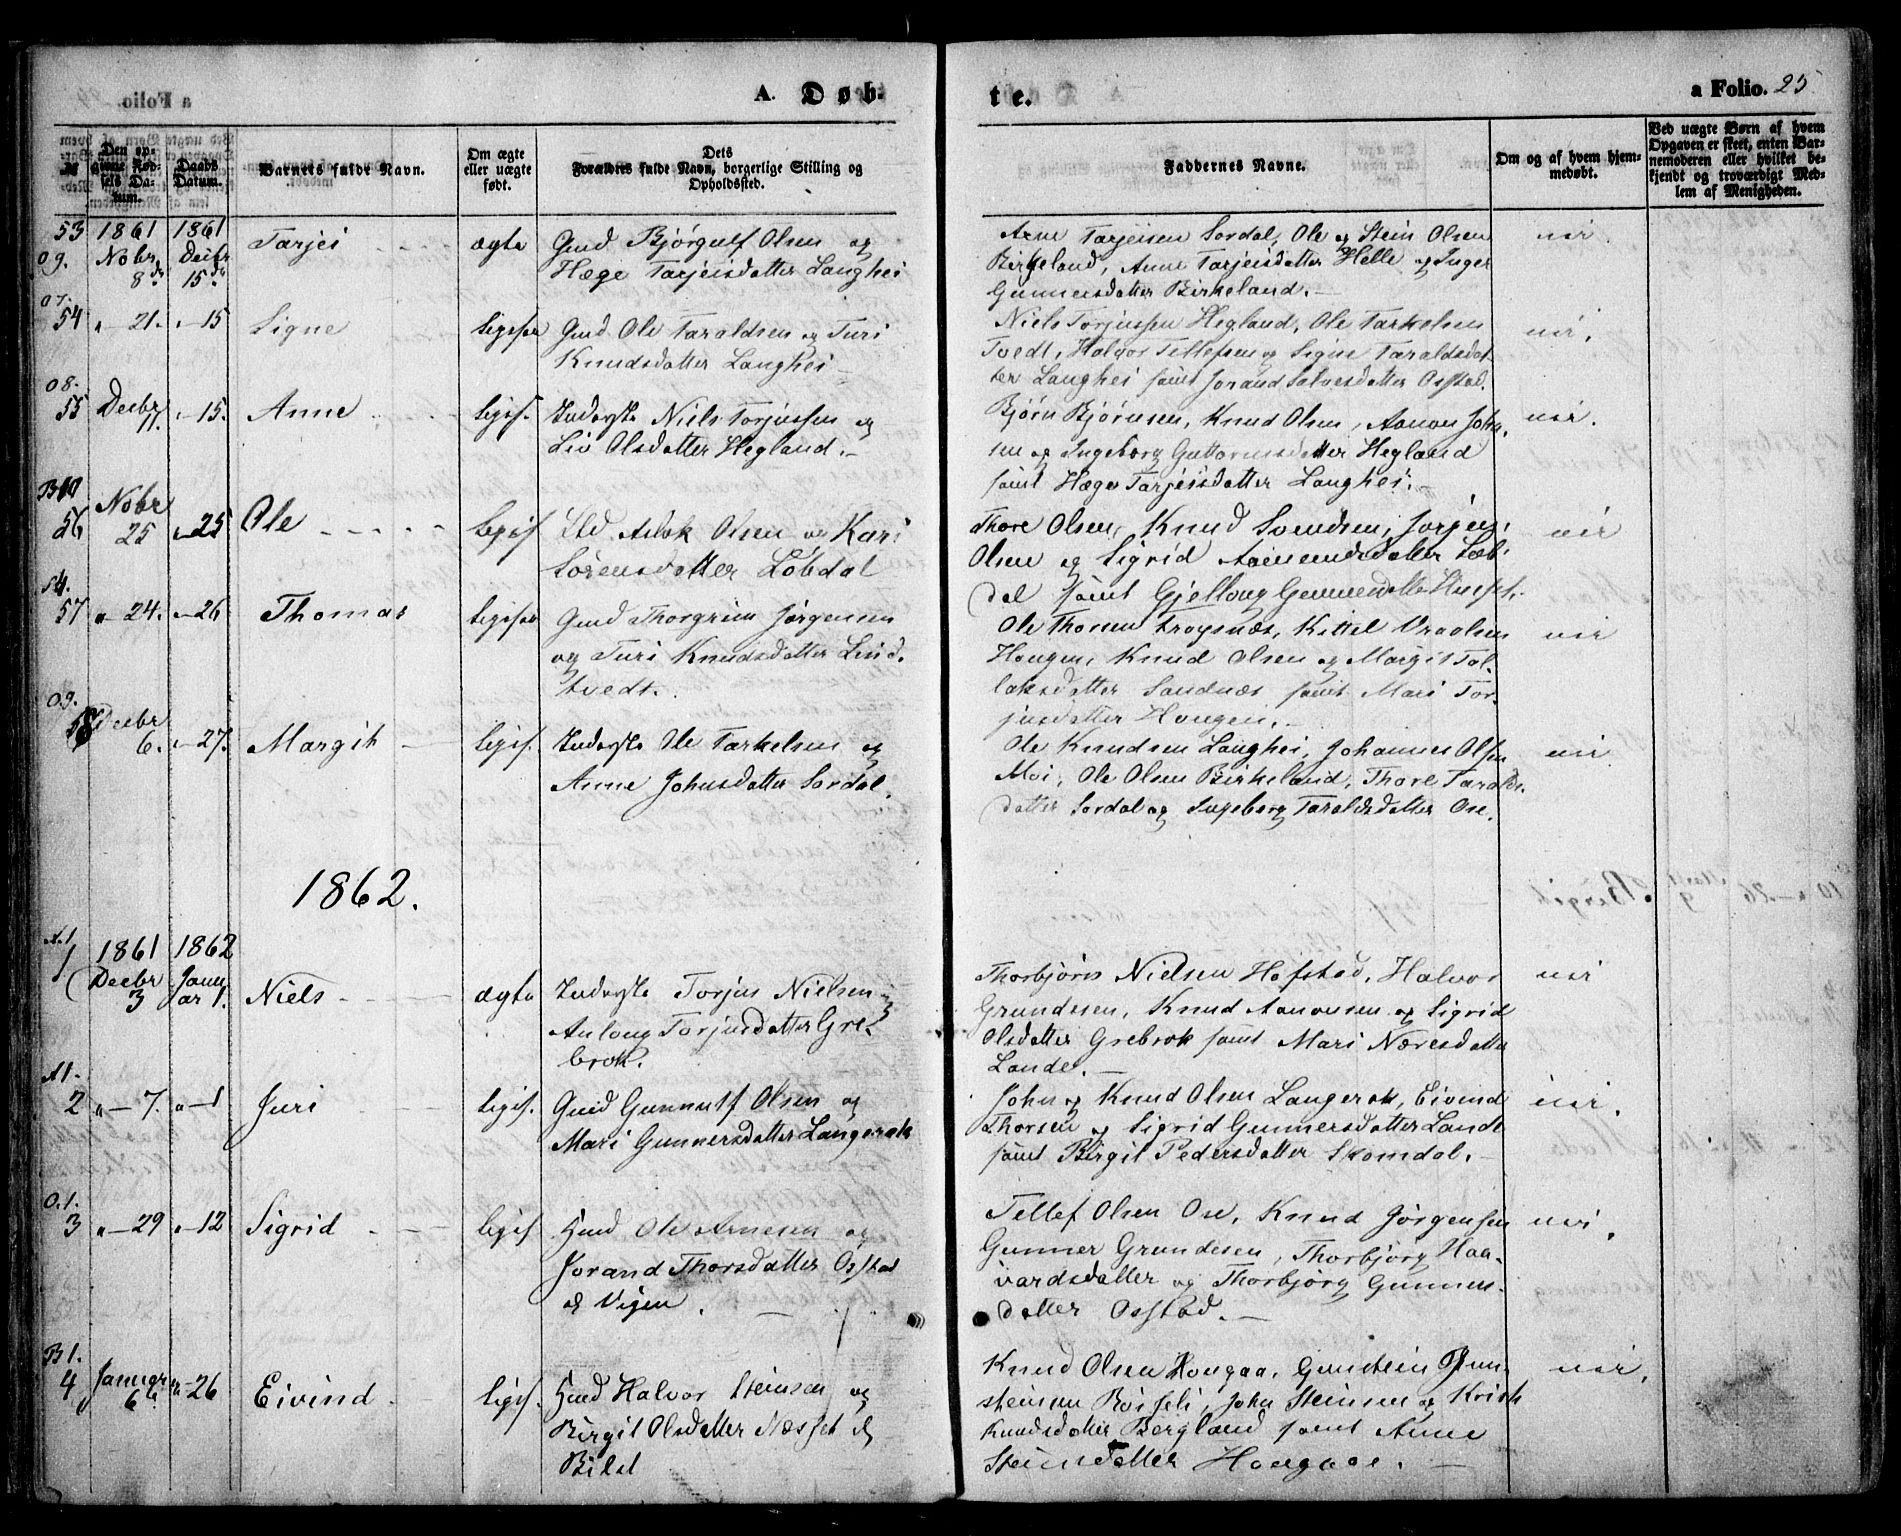 A. Døb-
te.
a Folio. 25
№
Den op-
givne Fød-
sels Da-
tum.
Daabs
Datum.
Barnets fulde Navn.
Om ægte
eller uægte
født.
Dets
Forældres fulde Navn, borgerlige Stilling og
Opholdssted.
Faddernes Navne.
Om og af hvem hjem-
medøbt.
Ved uægte Børn af hvem
Opgaven er skeet, enten Bar-
nemoderen eller hvilket be-
kjendt og troværdigt Med-
lem af Menigheden.
53 1861 1861 Tarjei ægte Gmd Bjørgulf Olsen og
09. Nobr Decbr Hæge Tarjeisdatter Langhei
8de 15de
Arne Tarjeisen Sordal, Ole og Stein Olsen
Birkeland, Anne Tarjeisdatter Helle og Inger
Gunnersdatter Birkeland.
07.
54 " - 21. " - 15 Signe Gmd Ole Taraldsen og Turi
Knudsdatter Langhei
Niels Torjussen Hegland, Ole Tarkelsen
Tvedt, Halvor Tellefsen og Signe Taraldsdat-
ter Langhei samt Jorand Salvesdatter Osstad.
08.
55 Decbr 11. " - 15. Anne legit. Inderste Niels Torjussen og
Liv Olsdatter Hegland.
Bjørn Bjørnsen, Knud Olsen, Aanon John-
sen og Ingeborg Guttormsdatter Hegland
samt Hæge Tarjeisdatter Langhei.
56 Nobr 25 " - 25 Ole legit. Aslak Olsen og Kari
Sørensdatter Løbdal
Thore Olsen, Knud Svendsen, Jørgen
Olsen og Sigrid Løb-
dal samt
57 " - 24. " - 26 Thomas Gmd Thorgrim Jørgensen
og Turi Knudsdatter Lind-
tvedt.
Ole Thorsen Krogsnæs, Kittel Vraalsen
Haugen, Knud Olsen og Margit Tal-
laksdatter Sandnæs samt Mari Tor-
jusdatter Haugen.
09.
58 Decbr 6. " - 27. Margit legit. Inderste Ole Tarkelsen og
Anne Johnsdatter Sordal.
Ole Knudsen Langhei, Johannes Olsen
Moi, Ole Olsen Birkeland, Thore Taralds-
datter Sordal og Ingeborg Taraldsdatter Ose.
1862.
A.1
1 1861 1862
Decbr 3 Janu-
ar 1. Niels ægte Inderste Torjus Nielsen og
Anlaug Torjusdatter Gre-
brok.
Thorbjørn Nielsen Hofstad, Halvor
Grundesen, Knud Aanonsen og Sigrid
Olsdatter Grebrok samt Mari Næresdatter
Lande.
A1.
2 " - 7. " - 1 Juri legit. Gmd Gunnulf Olsen og
Mari Gunnersdatter Langerak
John og Knud Olsen Langerak, Eivind
Thorsen og Sigrid Gunnersdatter Lande
samt Birgit Pedersdatter Skomdal.
O.1.
3 " - 29 " - 12 Sigrid legit. Gmd Ole Arnesen og
Jorand Thorsdatter Osstad
Vigen.
Tellef Olsen Ose, Knud Jørgensen
Gunner Grundesen, Thorbjørg Haa-
vardsdatter og Thorbjørg Gunners-
datter Osstad.
B1.
4 Januar 6te " - 26 Eivind legit. Gmd Halvor Steinsen og
Birgit Olsdatter Næsset
Knud Olsen Haugaa, Gunstein Gun-
steinsen, John Steinsen og
Knudsdatter Bergland samt Anne
Steinsdatter Haugaae.